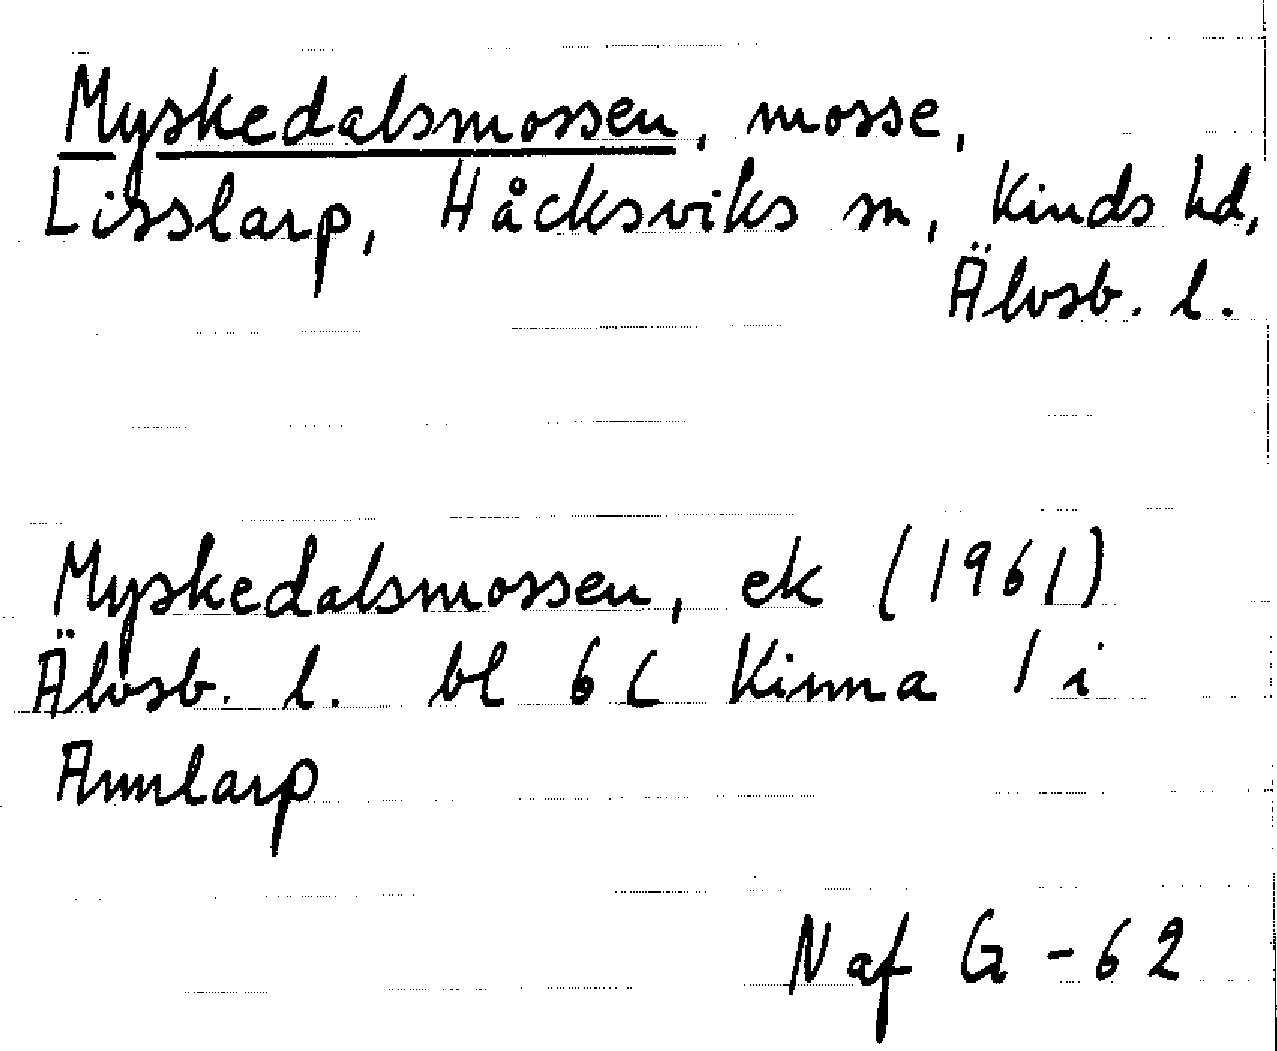 Myskedalsmossen, mosse,
Lisslarp, Håcksviks sn, Kinds hd,
Älvsb. l.
Myskedalsmossen, ek (1961)
Älvsb. l. bl 6 C Kinna / i
Annlarp
N af G - 62